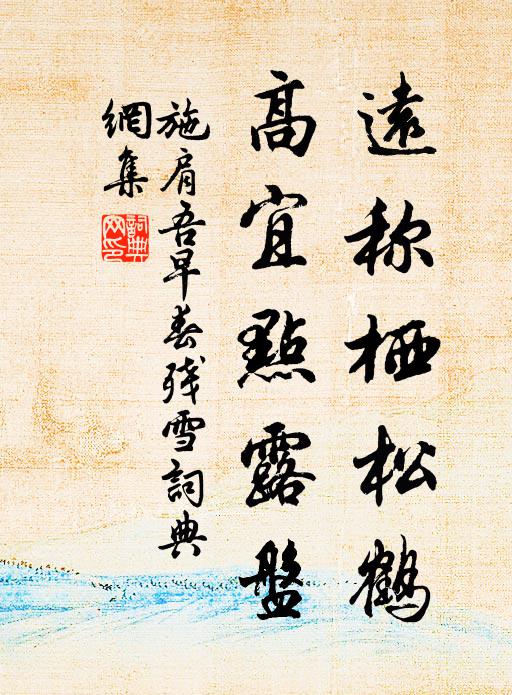 遠称栖松鶴
高宜點露盤
施肩吾早春残雪詞典
網集
詞典網印